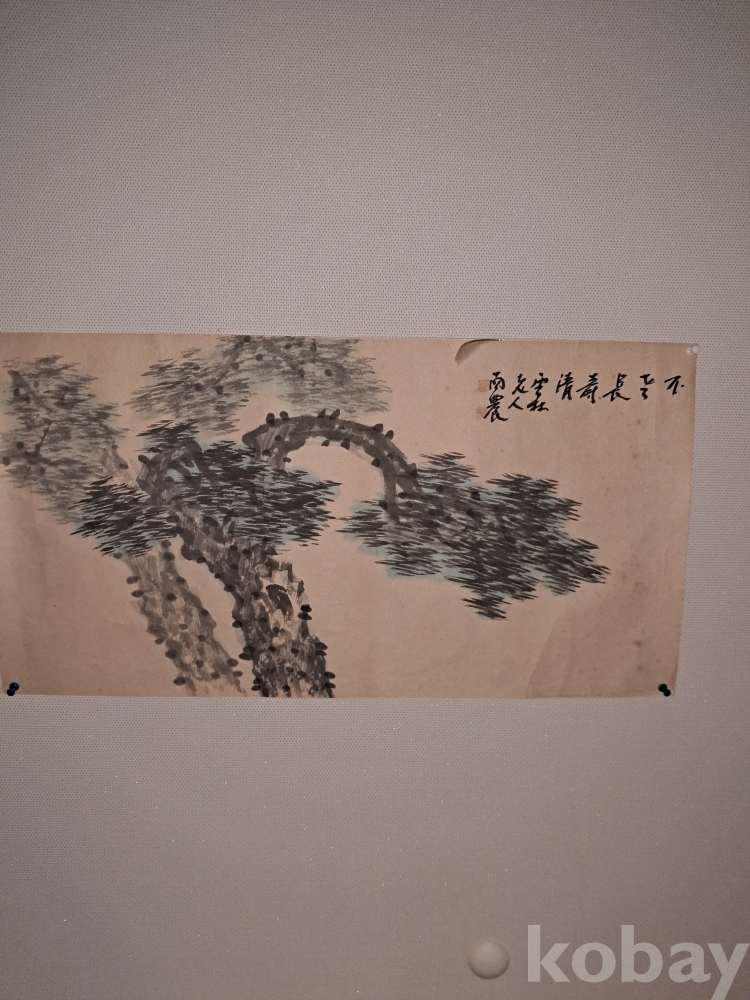 不老長壽清
雲林
老人
雨農
kobay